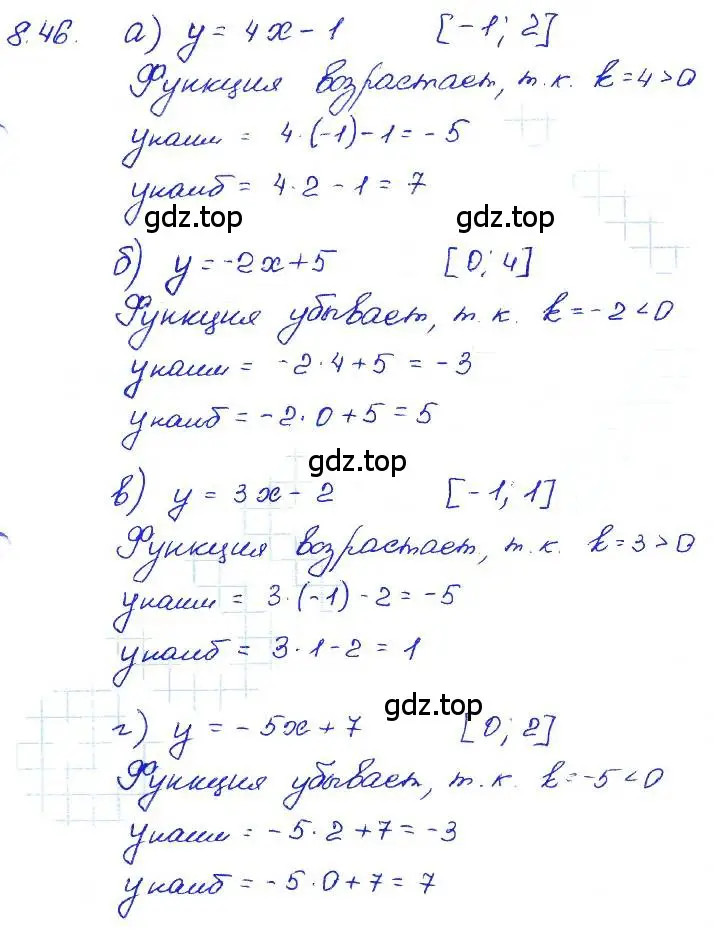 8.46. а) y = 4x - 1 [-1; 2]
Функция возрастает, т.к. k=4>0
yнаим = 4·(-1)-1 = -5
yнаиб = 4·2 - 1 = 7
gdz.top gdz.top
б) y = -2x+5 [0; 4]
Функция убывает, т.к. k=-2<0
yнаим = -2·4+5 = -3
yнаиб = -2·0+5 = 5
gdz.top
в) y = 3x - 2 [-1; 1]
Функция возрастает, т.к. k=3>0
yнаим = 3·(-1) - 2 = -5
yнаиб = 3·1-2 = 1
gdz.top
г) y = -5x+7 [0; 2]
Функция убывает, т.к. k=-5<0
yнаим = -5·2+7 = -3
yнаиб = -5·0+7 = 7